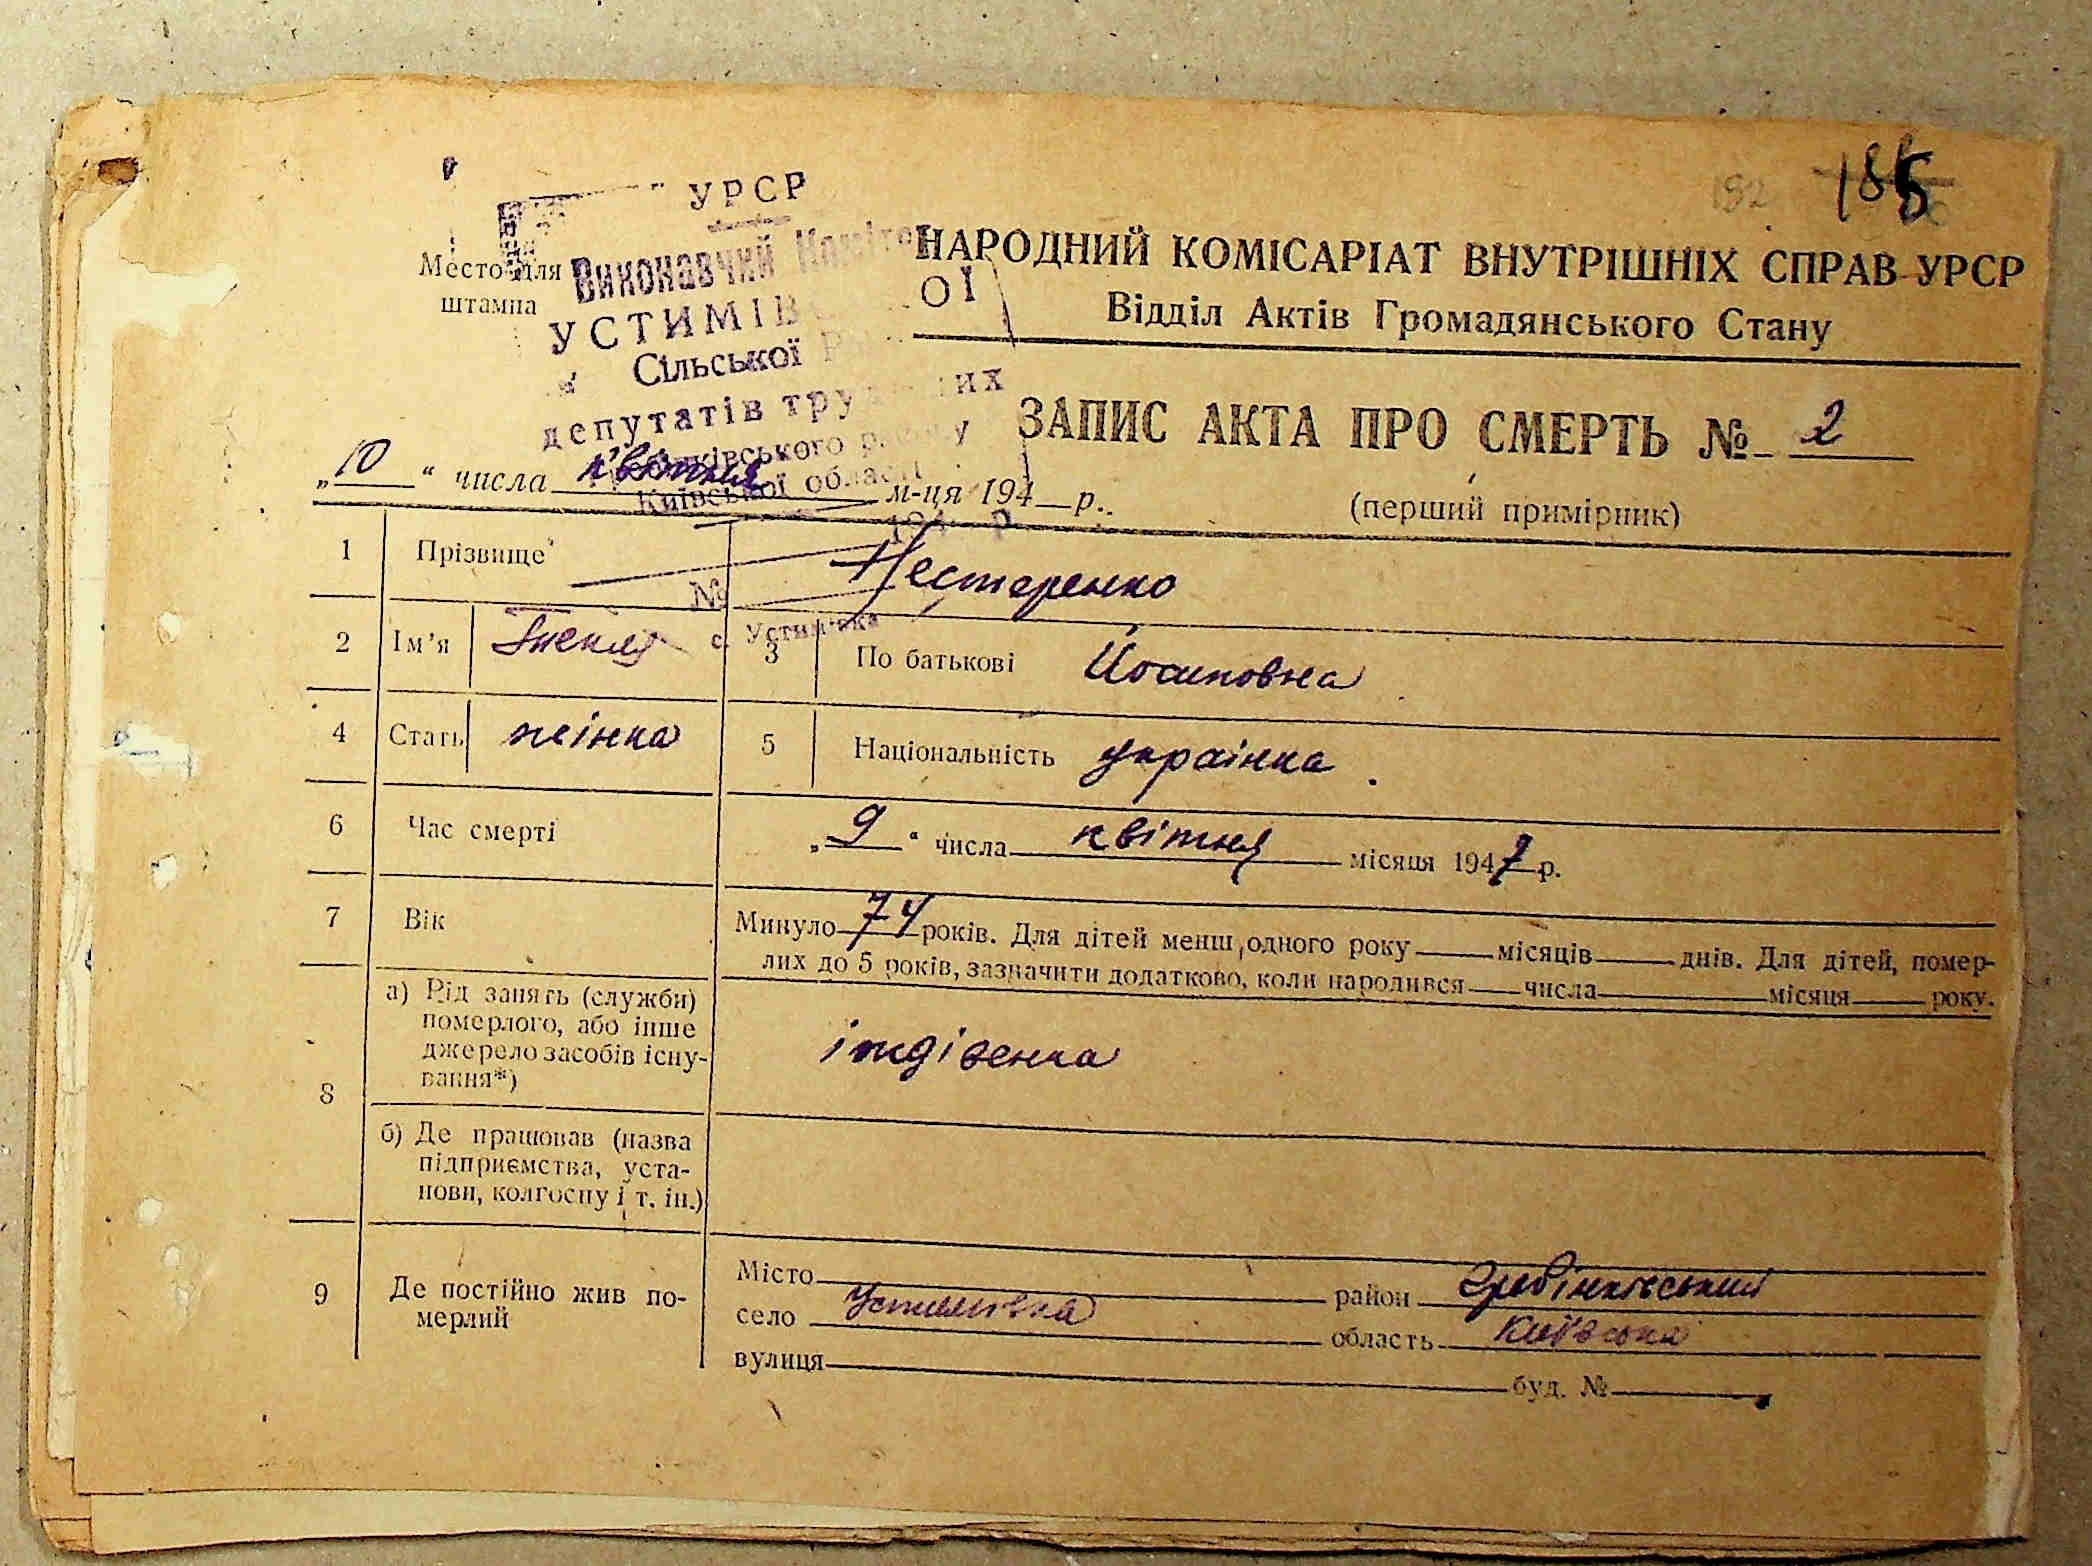 192 185
УРСР
Место для штампа
Виконавчий Комітет
УСТИМІВСЬКОЇ
Сільської Ради
депутатів трудящих
Гребінківського району
Київської області
194 р.
№
с. Устимівка
НАРОДНИЙ КОМІСАРІАТ ВНУТРІШНІХ СПРАВ УРСР
Відділ Актів Громадянського Стану
ЗАПИС АКТА ПРО СМЕРТЬ № 2
„10“ числа квітня м-ця 194 р.
(перший примірник)
1 Прізвище Нестеренко
2 Ім’я Текля 3 По батькові Йосиповна
4 Стать жінка 5 Національність українка
6 Час смерті „9“ числа квітня місяця 1947 р.
7 Вік Минуло 74 років. Для дітей менш одного року місяців днів. Для дітей, помер-
лих до 5 років, зазначити додатково, коли народився числа місяця року.
8 а) Рід занять (служби)
померлого, або інше
джерело засобів існу-
вання*)
іждівенка
б) Де працював (назва
підприємства, уста-
нови, колгоспу і т. ін.)
9 Де постійно жив по-
мерлий
Місто район Гребінківський
село Устимівка область Київська
вулиця буд. №